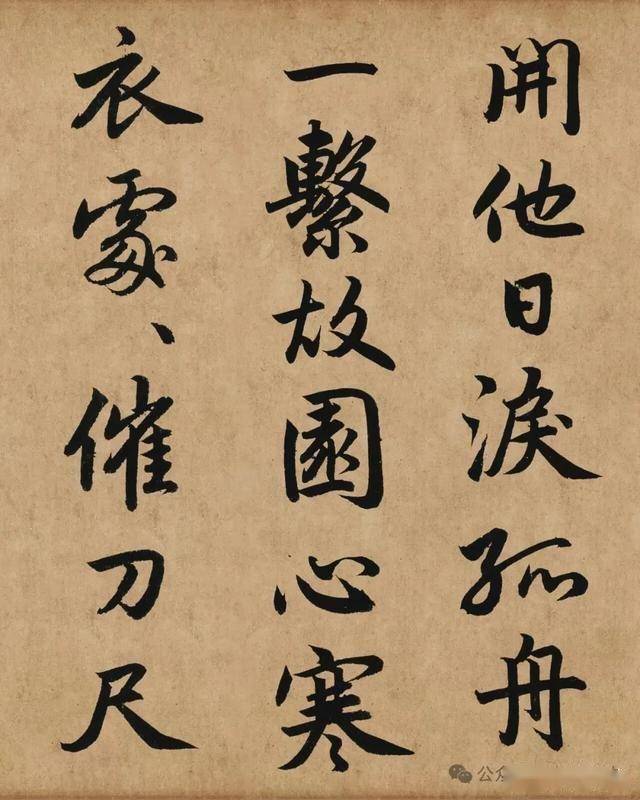 開他日淚孤舟
一繫故園心寒
衣處、催刀尺
公众